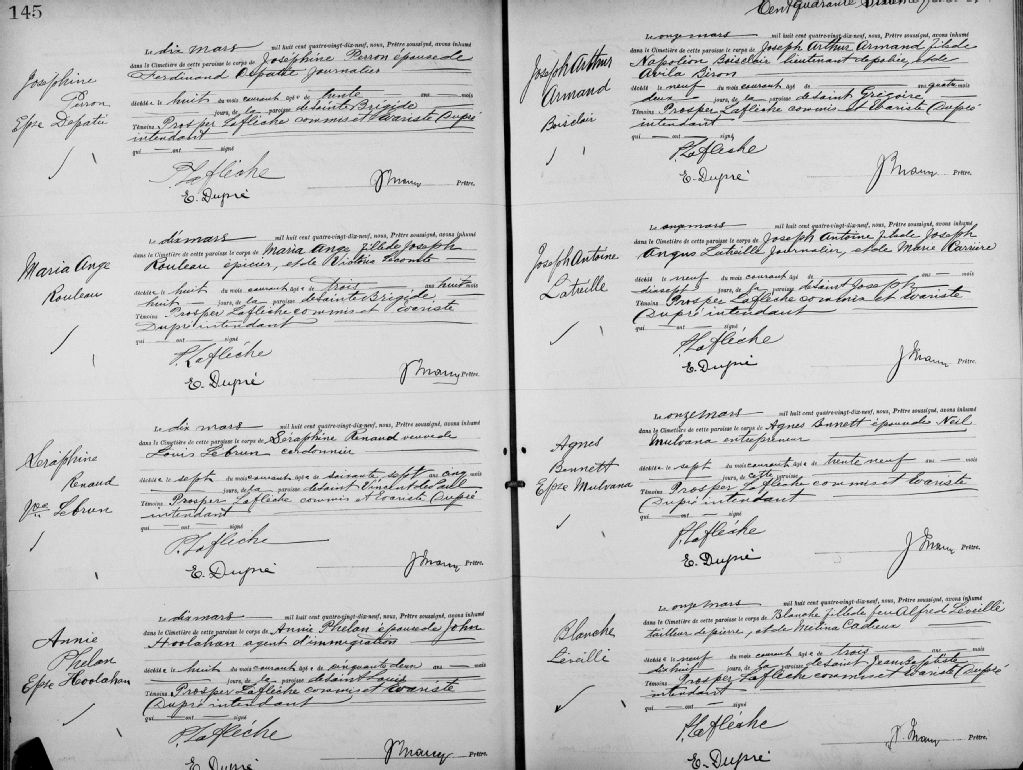 145
Josephine
Perron
Epse Depatie
Le dix mars mil huit cent quatre-vingt-dix-neuf, nous, Prêtre soussigné, avons inhumé
dans le Cimetière de cette paroisse le corps de Joséphine Perron épouse de
Ferdinand Depatie Journalier
décédée le huit du mois courant âgée de trente ans mois
jours, de la paroisse de Sainte Brigide
Témoins Prosper Laflèche commis et Evariste Dupré
intendant
qui ont signé
P. Laflèche
E. Dupré
Prêtre.
Maria Ange
Rouleau
Le dix mars mil huit cent quatre-vingt-dix-neuf, nous, Prêtre soussigné, avons inhumé
dans le Cimetière de cette paroisse le corps de Maria Ange fille de Joseph
Rouleau épicier, et de Victoria Lecomte
décédée le huit du mois courant âgée de trois ans huit mois
huit jours, de la paroisse de Sainte Brigide
Témoins Prosper Laflèche commis et Evariste
Dupré intendant
qui ont signé
P. Laflèche
E. Dupré
Prêtre.
Seraphine
Renaud
Vve Lebrun
Le dix mars mil huit cent quatre-vingt-dix-neuf, nous, Prêtre soussigné, avons inhumé
dans le Cimetière de cette paroisse le corps de Séraphine Renaud veuve de
Louis Lebrun cordonnier
décédée le sept du mois courant âgée de soixante sept ans onze mois
jours, de la paroisse de Saint Vincent de Paul
Témoins Prosper Laflèche commis et Evariste Dupré
intendant
qui ont signé
P. Laflèche
E. Dupré
Prêtre.
Annie
Phelan
Epse Hoolahan
Le dix mars mil huit cent quatre-vingt-dix-neuf, nous, Prêtre soussigné, avons inhumé
dans le Cimetière de cette paroisse le corps de Annie Phelan épouse de John
Hoolahan agent d'immigration
décédée le huit du mois courant âgée de cinquante deux ans mois
jours, de la paroisse de Saint Louis
Témoins Prosper Laflèche commis et Evariste
Dupré intendant
qui ont signé
P. Laflèche
E. Dupré
Prêtre.
Cent Quarante
Joseph Arthur
Armand
Boisclair
Le onze mars mil huit cent quatre-vingt-dix-neuf, nous, Prêtre soussigné, avons inhumé
dans le Cimetière de cette paroisse le corps de Joseph Arthur Armand fils de
Napoléon Boisclair lieutenant de police, et de
Avila Biron
décédé le neuf du mois courant âgé de ans quatre mois
deux jours, de la paroisse de Saint Grégoire
Témoins Prosper Laflèche commis et Evariste Dupré
intendant
qui ont signé
P. Laflèche
E. Dupré
Prêtre.
Joseph Antoine
Latreille
Le onze mars mil huit cent quatre-vingt-dix-neuf, nous, Prêtre soussigné, avons inhumé
dans le Cimetière de cette paroisse le corps de Joseph Antoine fils de Joseph
Angus Latreille Journalier, et de Marie Carriere
décédé le neuf du mois courant âgé de ans mois
dix sept jours, de la paroisse de Saint Joseph
Témoins Prosper Laflèche commis et Evariste
Dupré intendant
qui ont signé
P. Laflèche
E. Dupré
Prêtre.
Agnes
Bennett
Epse Mulvana
Le onze mars mil huit cent quatre-vingt-dix-neuf, nous, Prêtre soussigné, avons inhumé
dans le Cimetière de cette paroisse le corps de Agnes Bennett épouse de Neil
Mulvana entrepreneur
décédée le sept du mois courant âgée de trente neuf ans mois
jours, de cette paroisse
Témoins Prosper Laflèche commis et Evariste
Dupré intendant
qui ont signé
P. Laflèche
E. Dupré
Prêtre.
Blanche
Léveillé
Le onze mars mil huit cent quatre-vingt-dix-neuf, nous, Prêtre soussigné, avons inhumé
dans le Cimetière de cette paroisse le corps de Blanche fille de feu Alfred Léveillé
tailleur de pierre, et de Melina Cadieux
décédée le neuf du mois courant âgée de trois ans mois
jours, de la paroisse de Saint Jean Baptiste
Témoins Prosper Laflèche commis et Evariste Dupré
intendant
qui ont signé
P. Laflèche
E. Dupré
Prêtre.